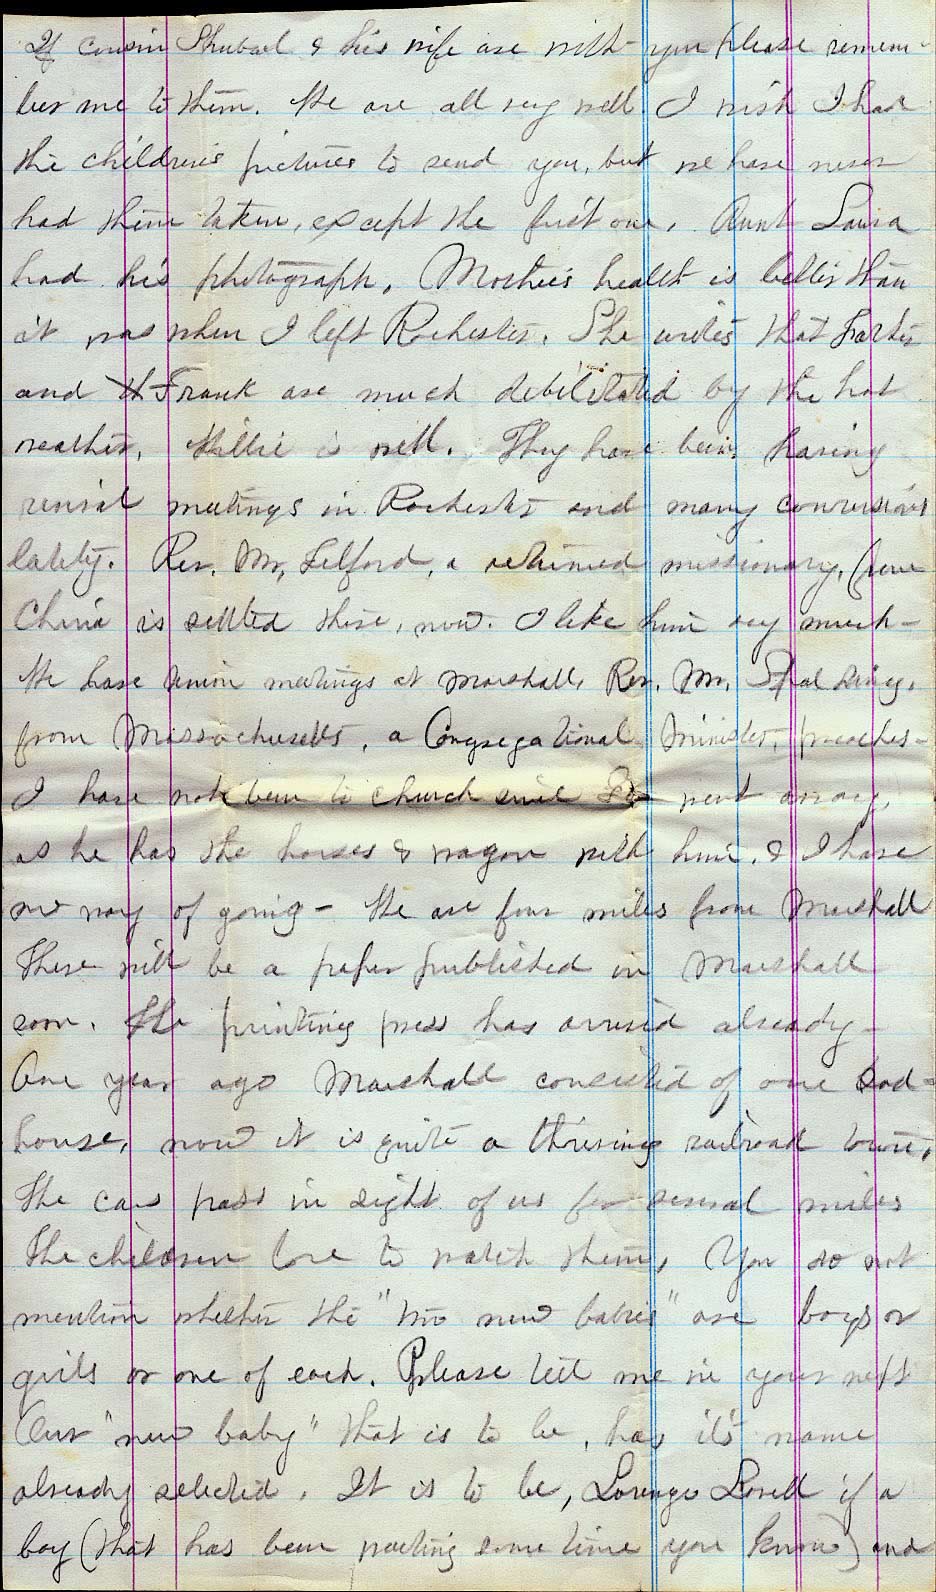 If cousin Shubael & his wife are with you please remem-
ber me to them. We are all very well. I wish I had
the children's pictures to send you, but we have never
had them taken, except the first one. Aunt Laura
had his photograph. Mother's health is better than
it was when I left Rochester. She writes that Father
and Frank are much debilitated by the hot
weather. Willie is well. They have been having
revival meetings in Rochester and many conversions
lately. Rev. Mr. Lelford, a returned missionary, from
China is settled there, now. I like him very much -
We have Union meetings at Marshall, Rev. Mr. Spalding,
from Massachusetts, a Congregational Minister, preaches -
I have not been to church since went away,
as he has the horses & wagon with him, & I have
no way of going - We are four miles from Marshall
There will be a paper published in Marshall
soon. The printing press has arrived already -
One year ago Marshall consisted of one sod-
house, now it is quite a thriving railroad town.
The cars pass in sight of us for several miles
The children love to watch them. You do not
mention whether the "two new babies" are boys or
girls or one of each. Please tell me in your next
Our "new baby" that is to be, has it's name
already selected. It is to be, Lorenzo Lovell if a
boy (that has been waiting some time you know) and